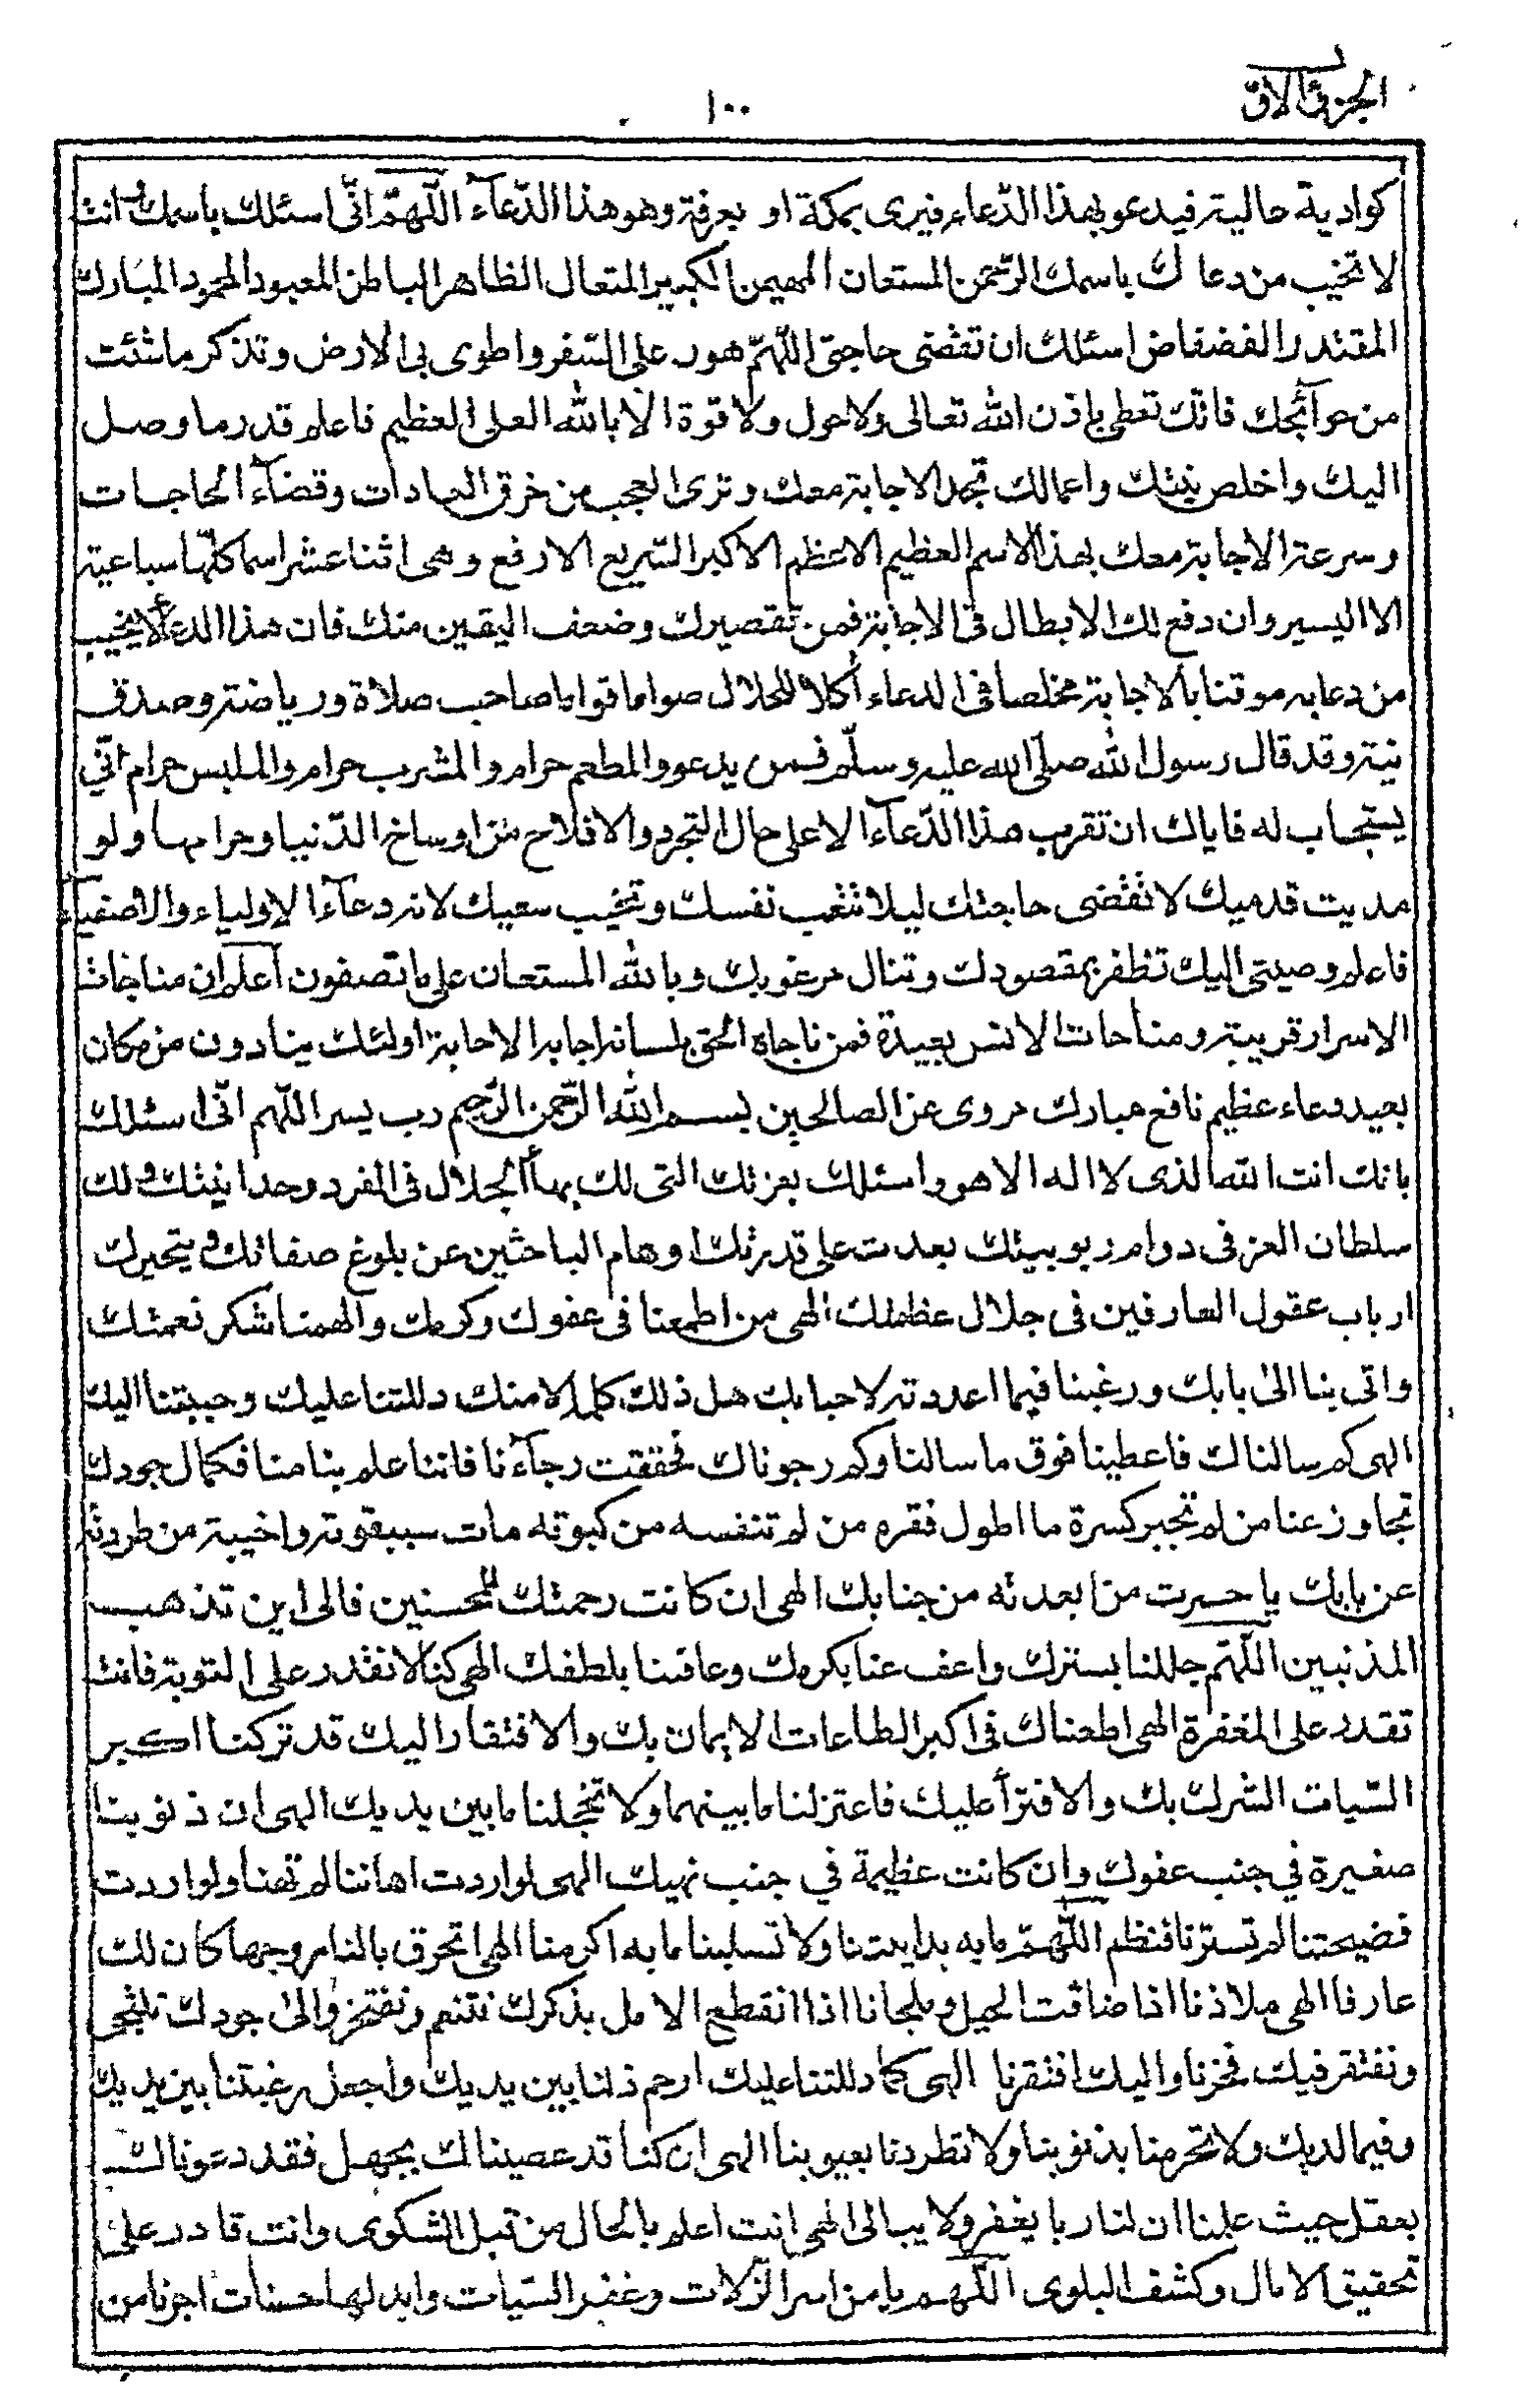 الجزئ الاوّل
١٠٠
كوادية حالية فيدعو بهذا الدّعاء فيرى بمكة او بعرفة وهو هذا الدّعآء اللّهمّ انّى اسئلك باسمك انت
لا تخيب من دعاك باسمك الرّحمن المستعان المهيمن الكبير المتعال الظاهر الباطن المعبود المحمود المبارك
المقتدر الفضفاض اسئلك ان تقضى حاجتى اللّهمّ هون على السّفر واطوى بى الارض وتذكر ماشئت
من حوآئجك فانّك تعطى باذن الله تعالى ولا حول ولا قوة الا بالله العلى العظيم فاعلم قدر ما وصل
اليك واخلص نيتك واعمالك تجد الاجابة معك وترى العجب من خرق العادات وقضآء الحاجات
وسرعة الاجابة معك بهذا الاسم العظيم الاعظم الاكبر السّريع الارفع وهى اثنا عشر اسما كلّها سباعية
الا اليسير وان دفع لك الابطال فى الاجابة فمن تقصيرك وضعف اليقين منك فان هذا الدعآ لا يخيب
من دعا به موقنا بالاجابة مخلصا فى الدعاء أكلا للحلال صواما قواما صاحب صلاة ورياضة وصدق
نية وقد قال رسول الله صلى الله عليه وسلّم فمن يدعو والمطعم حرام والمشرب حرام والملبس حرام انّى
يستجاب له فاياك ان تقرب هذا الدّعآء الا على حال التجرد والاقلاح من اوساخ الدّنيا وحرامها ولو
مديت قدميك لا تقضى حاجتك ليلا تتعب نفسك وتخيب سعيك لانه دعآء الاولياء والاصفياء
فاعلم وصيتى اليك تظفر بمقصودك وتنال مرغوبك وبالله المستعان على ما تصفون اعلم ان مناجات
الاسرار قريبة ومناجات الانس بعيدة فمن ناجاه الحق بلسانه اجابه الاجابة اولئك ينادون من مكان
بعيد دعاء عظيم نافع مبارك مروى عن الصالحين بسم الله الرّحمن الرّحيم رب يسر اللّهم انّى اسئلك
بانك انت الله الذى لا اله الا هو واسئلك بعزتك التى لك بهآ الجلال فى الفرد وحدانيتك ولك
سلطان العز فى دوام ربوبيتك بعدت على قدرتك اوهام الباحثين عن بلوغ صفاتك ويتحيرك
ارباب عقول العارفين فى جلال عظمتك الهى من اطمعنا فى عفوك وكرمك والهمنا شكر نعمتك
واتى بنا الى بابك ورغبنا فيما اعددته لاحبابك هل ذلك كله الا منك دللتنا عليك وحببتنا اليك
الهى كم سالناك فاعطينا فوق ما سالنا وكم رجوناك فحققت رجآءنا فاننا علم بنا منا فكمال جودك
تجاوز عنا من لم تجبر كسرة ما اطول فقره من لم تنفسه من كبوته مات سببقوته واخيبة من طردته
عن بابك يا حسرت من ابعدته من جنابك الهى ان كانت رحمتك للمحسنين فالى اين تذهب
المذنبين اللّهم جللنا بسترك واعف عنا بكرمك وعافنا بلطفك الهى كنا لا نقدر على التوبة فانت
تقدد على المغفرة الهى اطعناك فى اكبر الطاعات الايمان بك والافتقار اليك قد تركنا اكبر
السّيات الشرك بك والافترأ عليك فاعتزلنا ما بينهما ولا تخجلنا ما بين يديك الهى ان ذنوبنا
صغيرة في جنب عفوك وان كانت عظيمة في جنب نهيك الهى لو اردت اهاننا لم تهنا ولو اردت
فضيحتنا لم تسترنا فنظم اللّهمّ ما به بدايتنا ولا تسلبنا ما به اكرمنا الهى اتحرق بالنار وجها كان لك
عارفا الهى ملاذنا اذا ضاقت الحيل وملجانا اذا انقطع الامل بذكرك نتنعم ونفتخر والى جودك نلتجى
ونفتقر فيك فخرنا واليك افتقرنا الهى كما دللتنا عليك ارحم ذلنا بين يديك واجعل رغبتنا بين يديك
وفيما لديك ولا تحرمنا بذنوبنا ولا تطردنا بعيوبنا الهى ان كنا قد عصيناك بجهل فقد دعوناك
بعقل حيث علمنا ان لنا ربا يغفر ولا يبالى الهى انت اعلم بالحال من قبل الشكوى وانت قادر على
تحقيق الامال وكشف البلوى اللّهم يا من استر الزّلات وغفر السّيات وابدلها حسنات اجرنا من